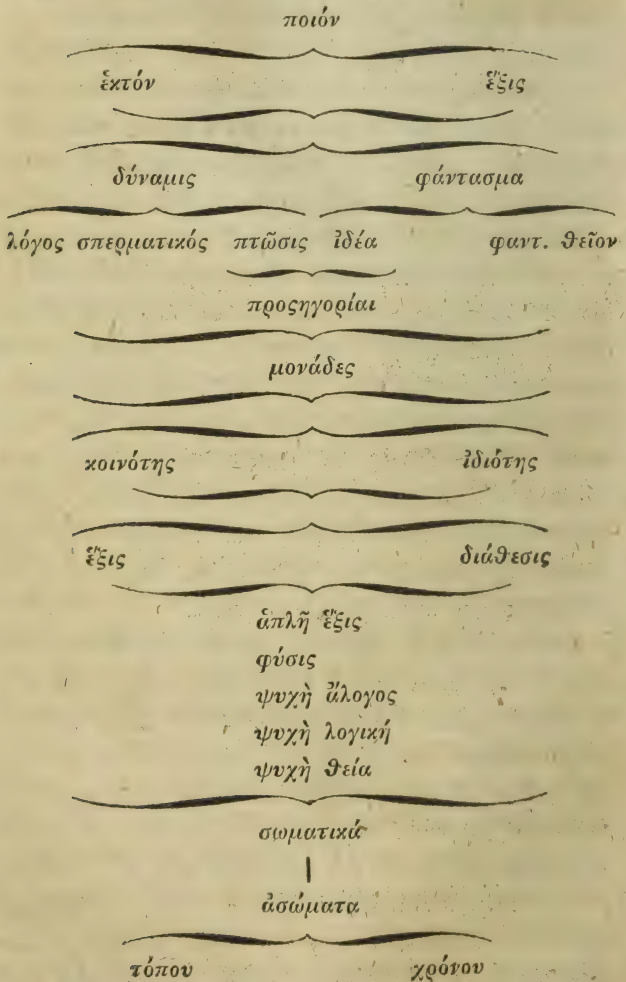 ποιόν
ἑκτόν ἕξις
δύναμις φάντασμα
λόγος σπερματικός πτῶσις ἰδέα φαντ. θεῖον
προςηγορίαι
μονάδες
κοινότης ἰδιότης
ἕξις διάθεσις
ἁπλῆ ἕξις
φύσις
ψυχὴ ἄλογος
ψυχὴ λογική
ψυχὴ θεία
σωματικά
ἀσώματα
τόπου χρόνου